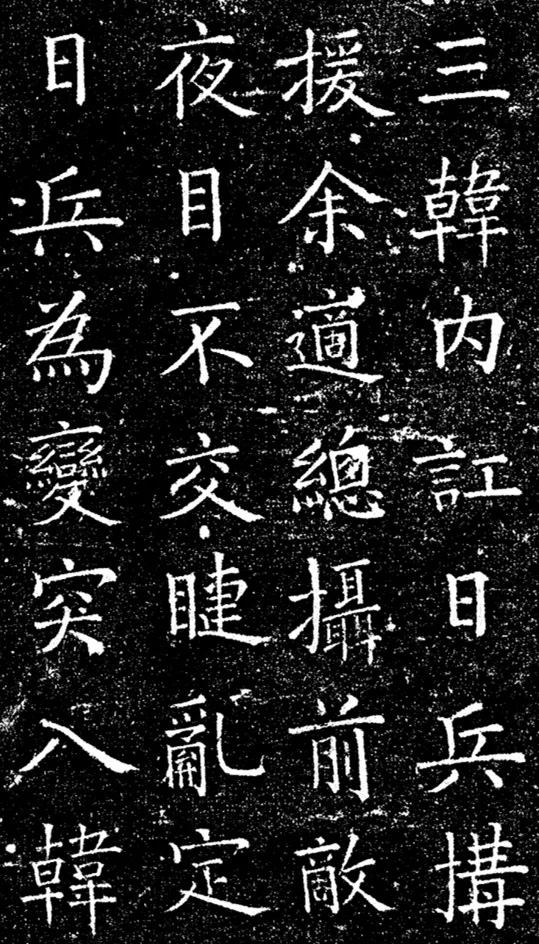 三韓內訌日兵搆
援余適總攝前敵
夜目不交睫亂定
日兵為變突入韓